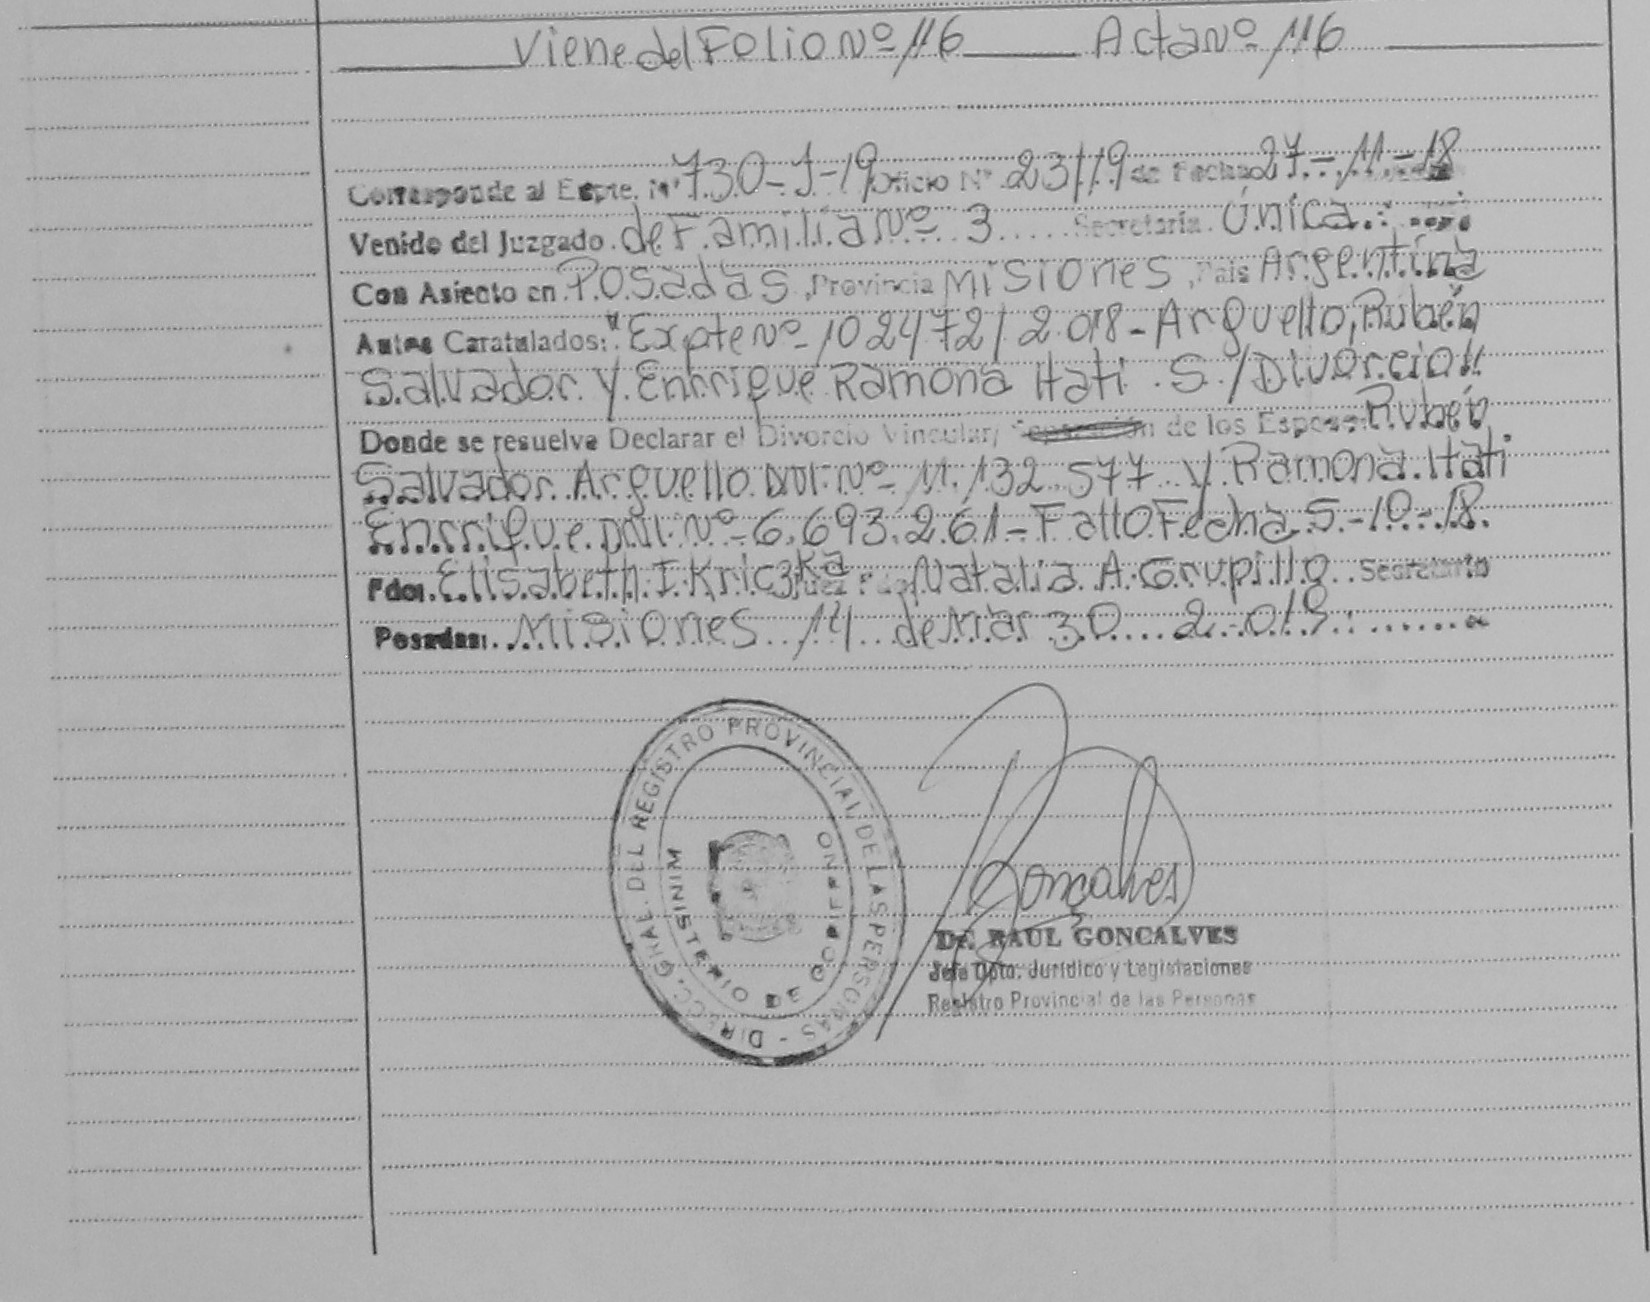 Viene del Folio Nº 116 Acta Nº 116
Corresponde al Expte. Nº 730-J-19 Oficio Nº 23119 de Fecha 27-11-18
Venido del Juzgado de Familia Nº 3 Secretaría Única
Con Asiento en Posadas, Provincia Misiones, País Argentina
Autos Caratulados: "Expte Nº 102472/2.018-Arguello, Rubén
Salvador y Enrrique Ramona Itati S./Divorcio"
Donde se resuelve Declarar el Divorcio Vincular, Separación de los Esposos Rubén
Salvador Arguello DNI Nº 11.132.577 y Ramona Itati
Enrrique DNI Nº 6.693.261-Fallo Fecha 5-10-18.
Fdo: Elisabeth I. Kriczka Juez Fdo Natalia A. Grupillo Secretario
Posadas: Misiones 14 de Marzo 2.019
DIRECC. GRAL. DEL REGISTRO PROVINCIAL DE LAS PERSONAS -
MINISTERIO DE GOBIERNO
Goncalves
Dr. RAUL GONCALVES
Jefe Dpto. Jurídico y Legislaciones
Registro Provincial de las Personas